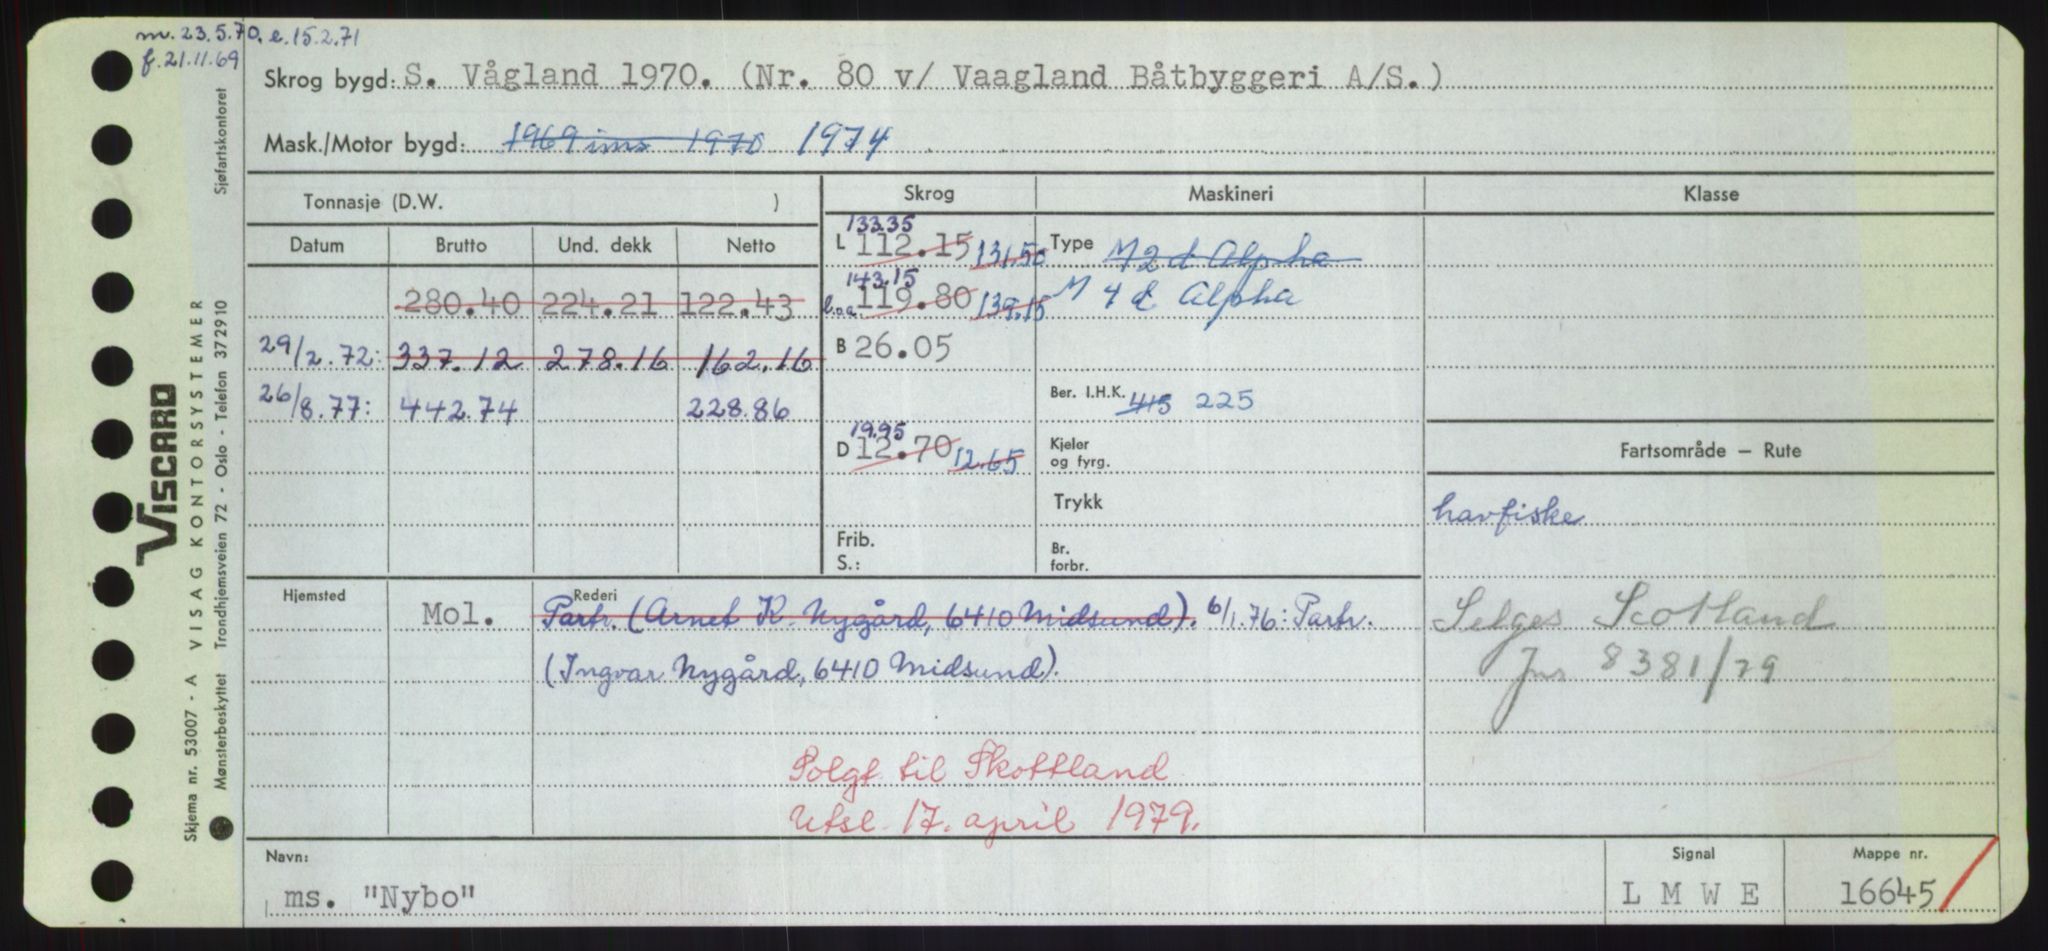 m. 23.5.70. e. 15.2.71
f. 21.11.69
Skrog bygd: S. Vågland 1970. (Nr. 80 v/ Vaagland Båtbyggeri A/S.)
Mask./Motor bygd: 1969 ims 1970 1974
Tonnasje (D.W. )
Skrog
Maskineri
Klasse
Datum Brutto Und. dekk Netto
133.35
L 112.15 131.50
Type M 2 d Alpha
280.40 224.21 122.43
143.15
l.o.a. 119.80 139.15
M 4 d Alpha
29/2.72: 337.12 278.16 162.16
B 26.05
26/8.77: 442.74 228.86
Ber. I.H.K. 415 225
19.95
D 12.70 12.65
Kjeler
og fyrg.
Fartsområde – Rute
Trykk
havfiske
Frib.
S.:
Br.
forbr.
Hjemsted
Rederi
Mol. Partr. (Arnet K. Nygård, 6410 Midsund). 6/1.76: Partr.
(Ingvar Nygård, 6410 Midsund).
Selges Scotland
Jnr 8381/79
Solgt til Skottland
Utsl. 17. april 1979.
Navn:
ms. "Nybo"
Signal
L M W E
Mappe nr.
16645
VISCARD
Skjema nr. 53007 - A VISAG KONTORSYSTEMER
Mønsterbeskyttet Trondhjemsveien 72 - Oslo - Telefon 372910 Sjøfartskontoret